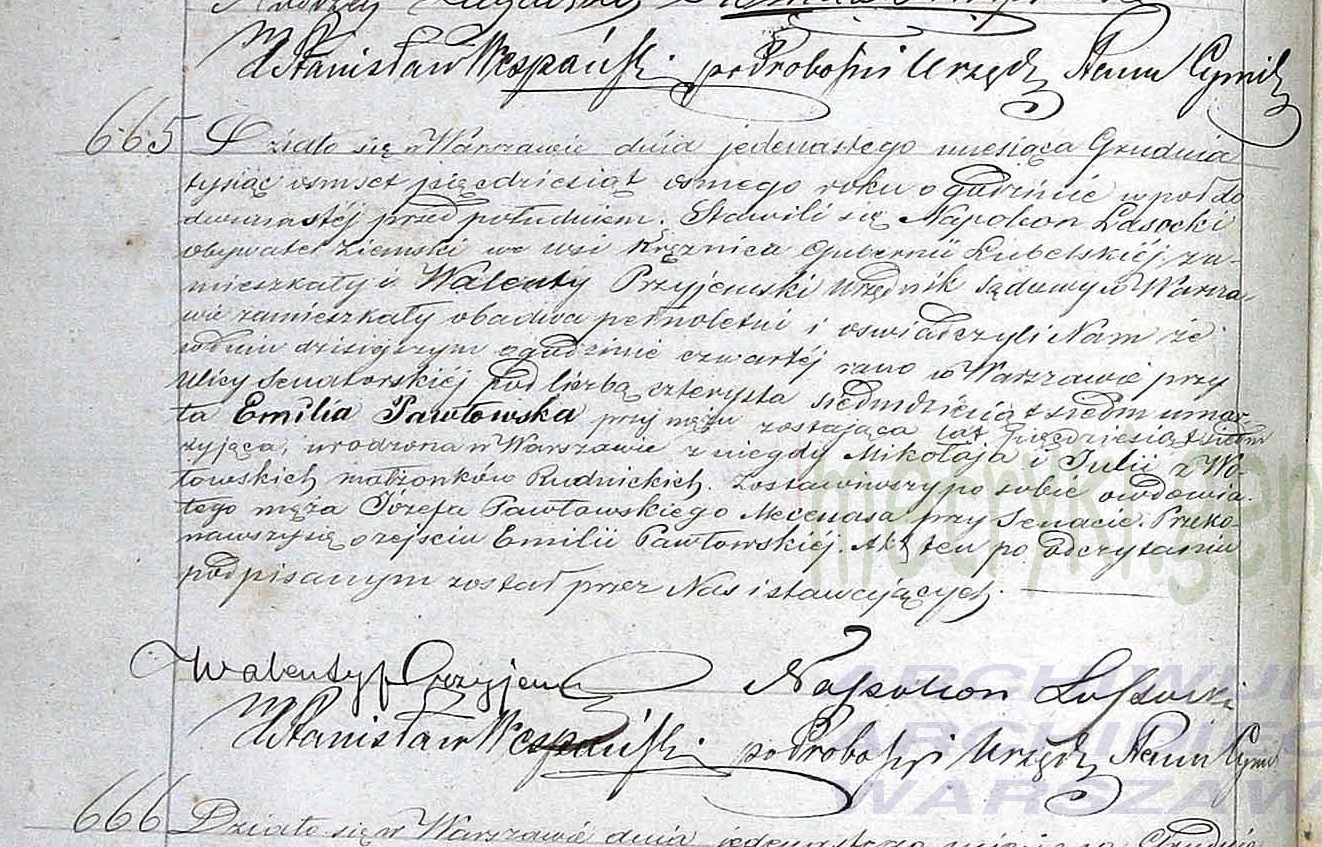 X. Stanisław Wespański po Proboszcz Urzęd Stanu Cywil
665 Działo się w Warszawie dnia jedenastego miesiąca Grudnia
tysiąc osmset pięćdziesiąt osmego roku o godzinie wpół do
dwunastéj przed południem. Stawili się Napoleon Lasocki
obywatel Ziemski we wsi Krężnica Gubernii Lubelskiéj za-
mieszkały i Walenty Przyjemski Urzędnik Sądowy w Warsza-
wie zamieszkały obadwa pełnoletni i oswiadczyli Nam że
w dniu dzisiajszym o godzinie czwartéj rano w Warszawie przy
Ulicy Senatorskiéj pod liczbą czterysta siedmdziesiąt siedm umar-
ła Emilia Pawłowska przy mężu zostająca lat pięćdziesiąt siedm
żyjąca, urodzona w Warszawie z niegdy Mikołaja i Julii z Wo-
łowskich małżonków Rudnickich. Zostawiwszy po sobie owdowia-
łego męża Józefa Pawłowskiego Mecenasa przy Senacie. Przeko-
nawszy się o zejściu Emilii Pawłowskiéj. Akt ten po odczytaniu
podpisanym został przez Nas i stawających.
Walenty Przyjem Napoleon Lasocki
X. Stanisław Wespański po Proboszcz Urzęd Stanu Cywil
666 Działo się w Warszawie dnia jedenastego miesiąca Grudnia
metryki.gen
ARCHIWUM
ARCHIDIEC
WARSZAW